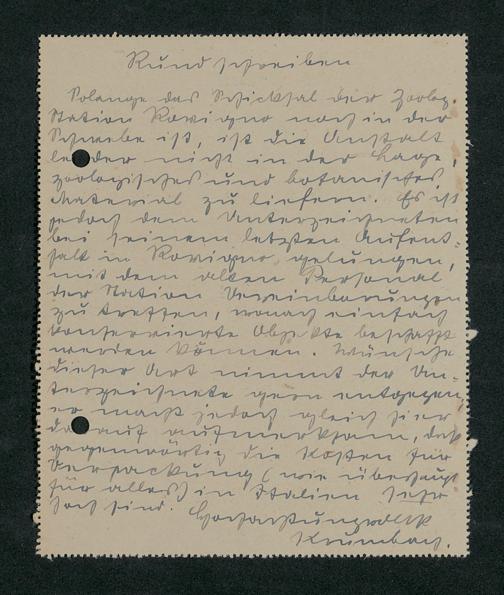 Rundschreiben
Solange das Schicksal der Zoolog.
Station Rovigno noch in der
Schwebe ist, ist die Anstalt
leider nicht in der Lage,
zoologisches und botanisches
Material zu liefern. Es ist
jedoch dem Unterzeichneten
bei seinem letzten Aufent-
halt in Rovigno gelungen,
mit dem alten Personal
der Station Vereinbarungen
zu treffen, wonach einfach
konservierte Objekte beschafft
werden können. Wünsche
dieser Art nimmt der Un-
terzeichnete gern entgegen
er macht jedoch gleich hier
darauf aufmerksam, daß
gegenwärtig die Kosten für
Verpackung (wie überhaupt
für alles) in Italien sehr
hoch sind. Hochachtungsvoll
Krumbach.